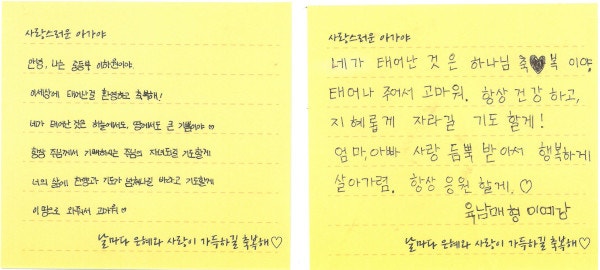 사랑스러운 아가야
안녕, 나는 중등부 이하원이야.
이세상에 태어난걸 환영하고 축복해!
네가 태어난 것은 하늘에서도, 땅에서도 큰 기쁨이야 ♡
항상 주님께서 기뻐하시는 주님의 자녀되길 기도할게
너의 삶에 찬양과 기도가 넘쳐나길 바라고 기도할게
이 땅으로 와줘서 고마워 ♡
날마다 은혜와 사랑이 가득하길 축복해♡
사랑스러운 아가야
네가 태어난 것은 하나님 축♥복 이야.
태어나 주어서 고마워. 항상 건강 하고,
지혜롭게 자라길 기도 할게!
엄마, 아빠 사랑 듬뿍 받아서 행복하게
살아가렴. 항상 응원 할게. ♡
날마다 은혜와 사랑이 가득하길 축복해♡